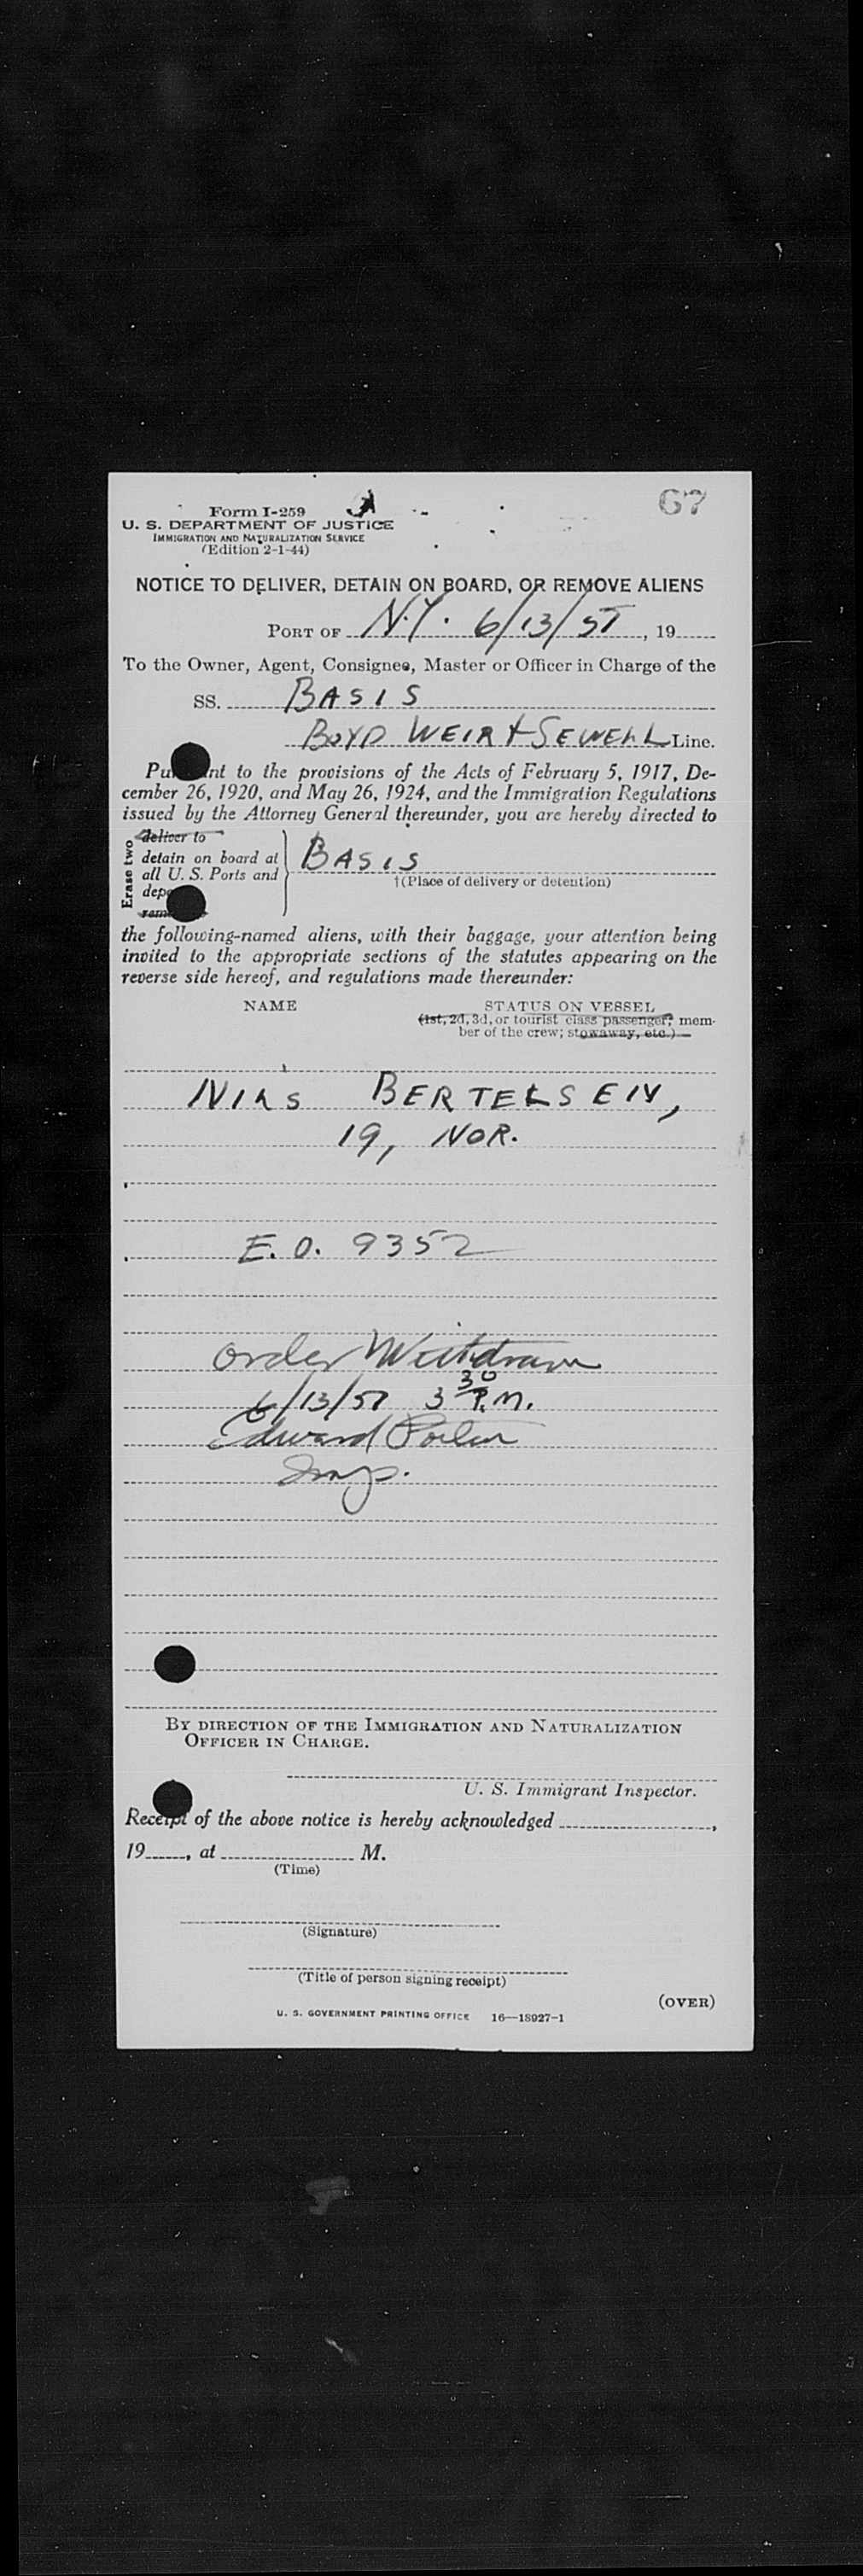 67
Form I-259
U. S. DEPARTMENT OF JUSTICE
IMMIGRATION AND NATURALIZATION SERVICE
(Edition 2-1-44)
NOTICE TO DELIVER, DETAIN ON BOARD, OR REMOVE ALIENS
PORT OF N.Y. 6/13/51, 19
To the Owner, Agent, Consignee, Master or Officer in Charge of the
SS. BASIS
BOYD WEIR & SEWELL Line.
Pu nt to the provisions of the Acts of February 5, 1917, De-
cember 26, 1920, and May 26, 1924, and the Immigration Regulations
issued by the Attorney General thereunder, you are hereby directed to
Erase two
deliver to
detain on board at
all U. S. Ports and
dep
rem
BASIS
†(Place of delivery or detention)
the following-named aliens, with their baggage, your attention being
invited to the appropriate sections of the statutes appearing on the
reverse side hereof, and regulations made thereunder:
NAME STATUS ON VESSEL
(1st, 2d, 3d, or tourist class passenger; mem-
ber of the crew; stowaway, etc.)
NILS BERTELSEN,
19, NOR.
E.O. 9352
Order Withdrawn
6/13/51 3 30 P.M.
Edward
Insp.
BY DIRECTION OF THE IMMIGRATION AND NATURALIZATION
OFFICER IN CHARGE.
U. S. Immigrant Inspector.
Receipt of the above notice is hereby acknowledged ,
19 , at M.
(Time)
(Signature)
(Title of person signing receipt)
(OVER)
U. S. GOVERNMENT PRINTING OFFICE 16—18927-1